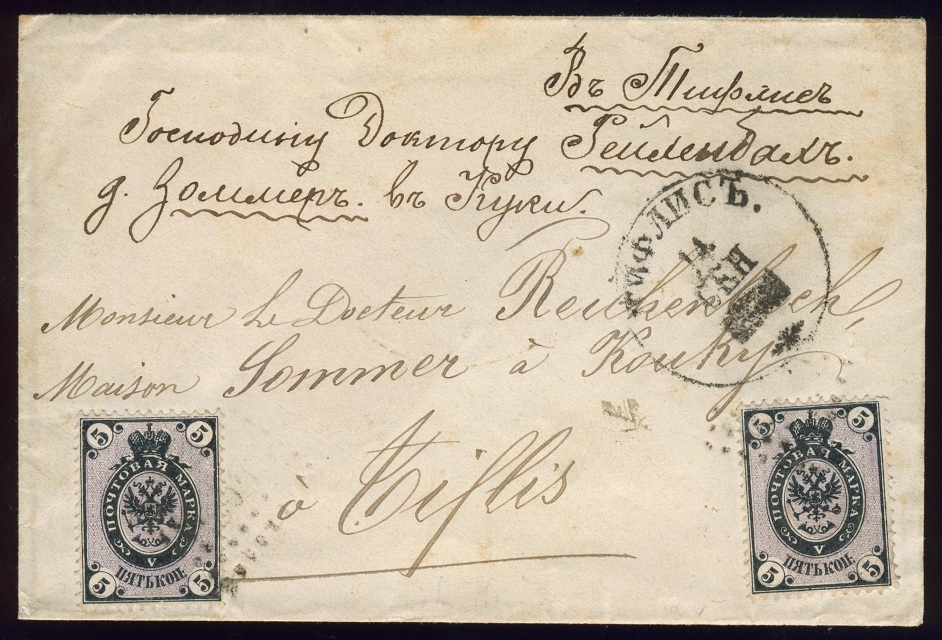 Въ Тифлисъ
Господину Доктору Рейхенбахъ.
д. Зоммеръ. въ Куки.
ТИФЛИСЪ.
14
Monsieur Le Docteur Reichenbach,
Maison Sommer à Kouky
à Tiflis
5 5
ПОЧТОВАЯ МАРКА
V
ПЯТЬ КОП.
5 5
5 5
ПОЧТОВАЯ МАРКА
V
ПЯТЬ КОП.
5 5